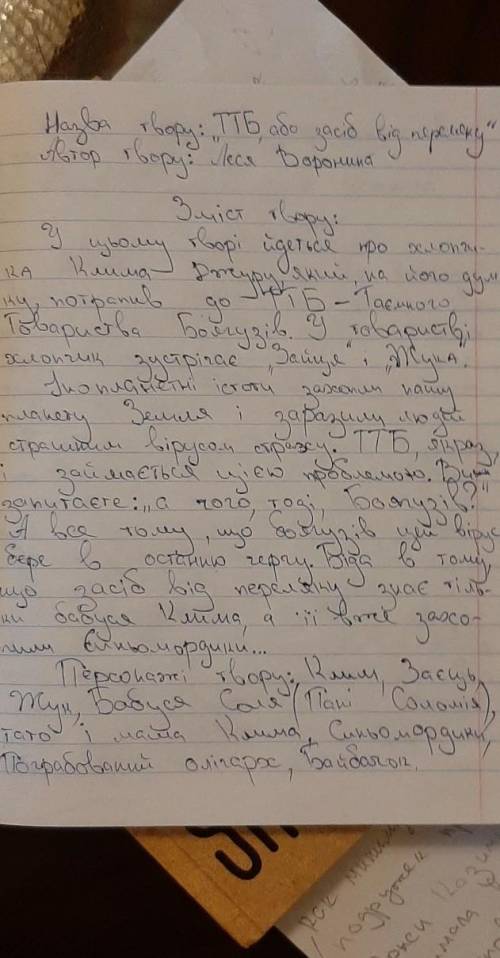 Назва твору: „ТТБ, або засіб від переляку"
Автор твору: Леся Воронина
Зміст твору:
У цьому творі йдеться про хлопчи-
ка Клима Джуру, який, на його дум
ку, потрапив до ТТБ – Таємного
Товариства Боягузів. У товаристві,
хлопчик зустрічає „Зайця" і „Жука".
Інопланетні істоти захопли нашу
планету Земля і заразили людей
страшним вірусом страху. ТТБ, якраз,
і займається цією проблемою. Ви
запитаєте: „а чого, тоді, Боягузів?"
А все тому, що боягузів цей вірус
бере в останню чергу. Біда в тому,
що засіб від переляку знає тіль-
ки бабуся Клима, а її вже захо-
пили Синьомордики...
Персонажі твору: Клим, Заєць,
Жук, Бабуся Соля (Пані Соломія),
тато і мама Клима, Синьомордики,
Пограбований олігарх, Байбачок.
рак
подружен
мала